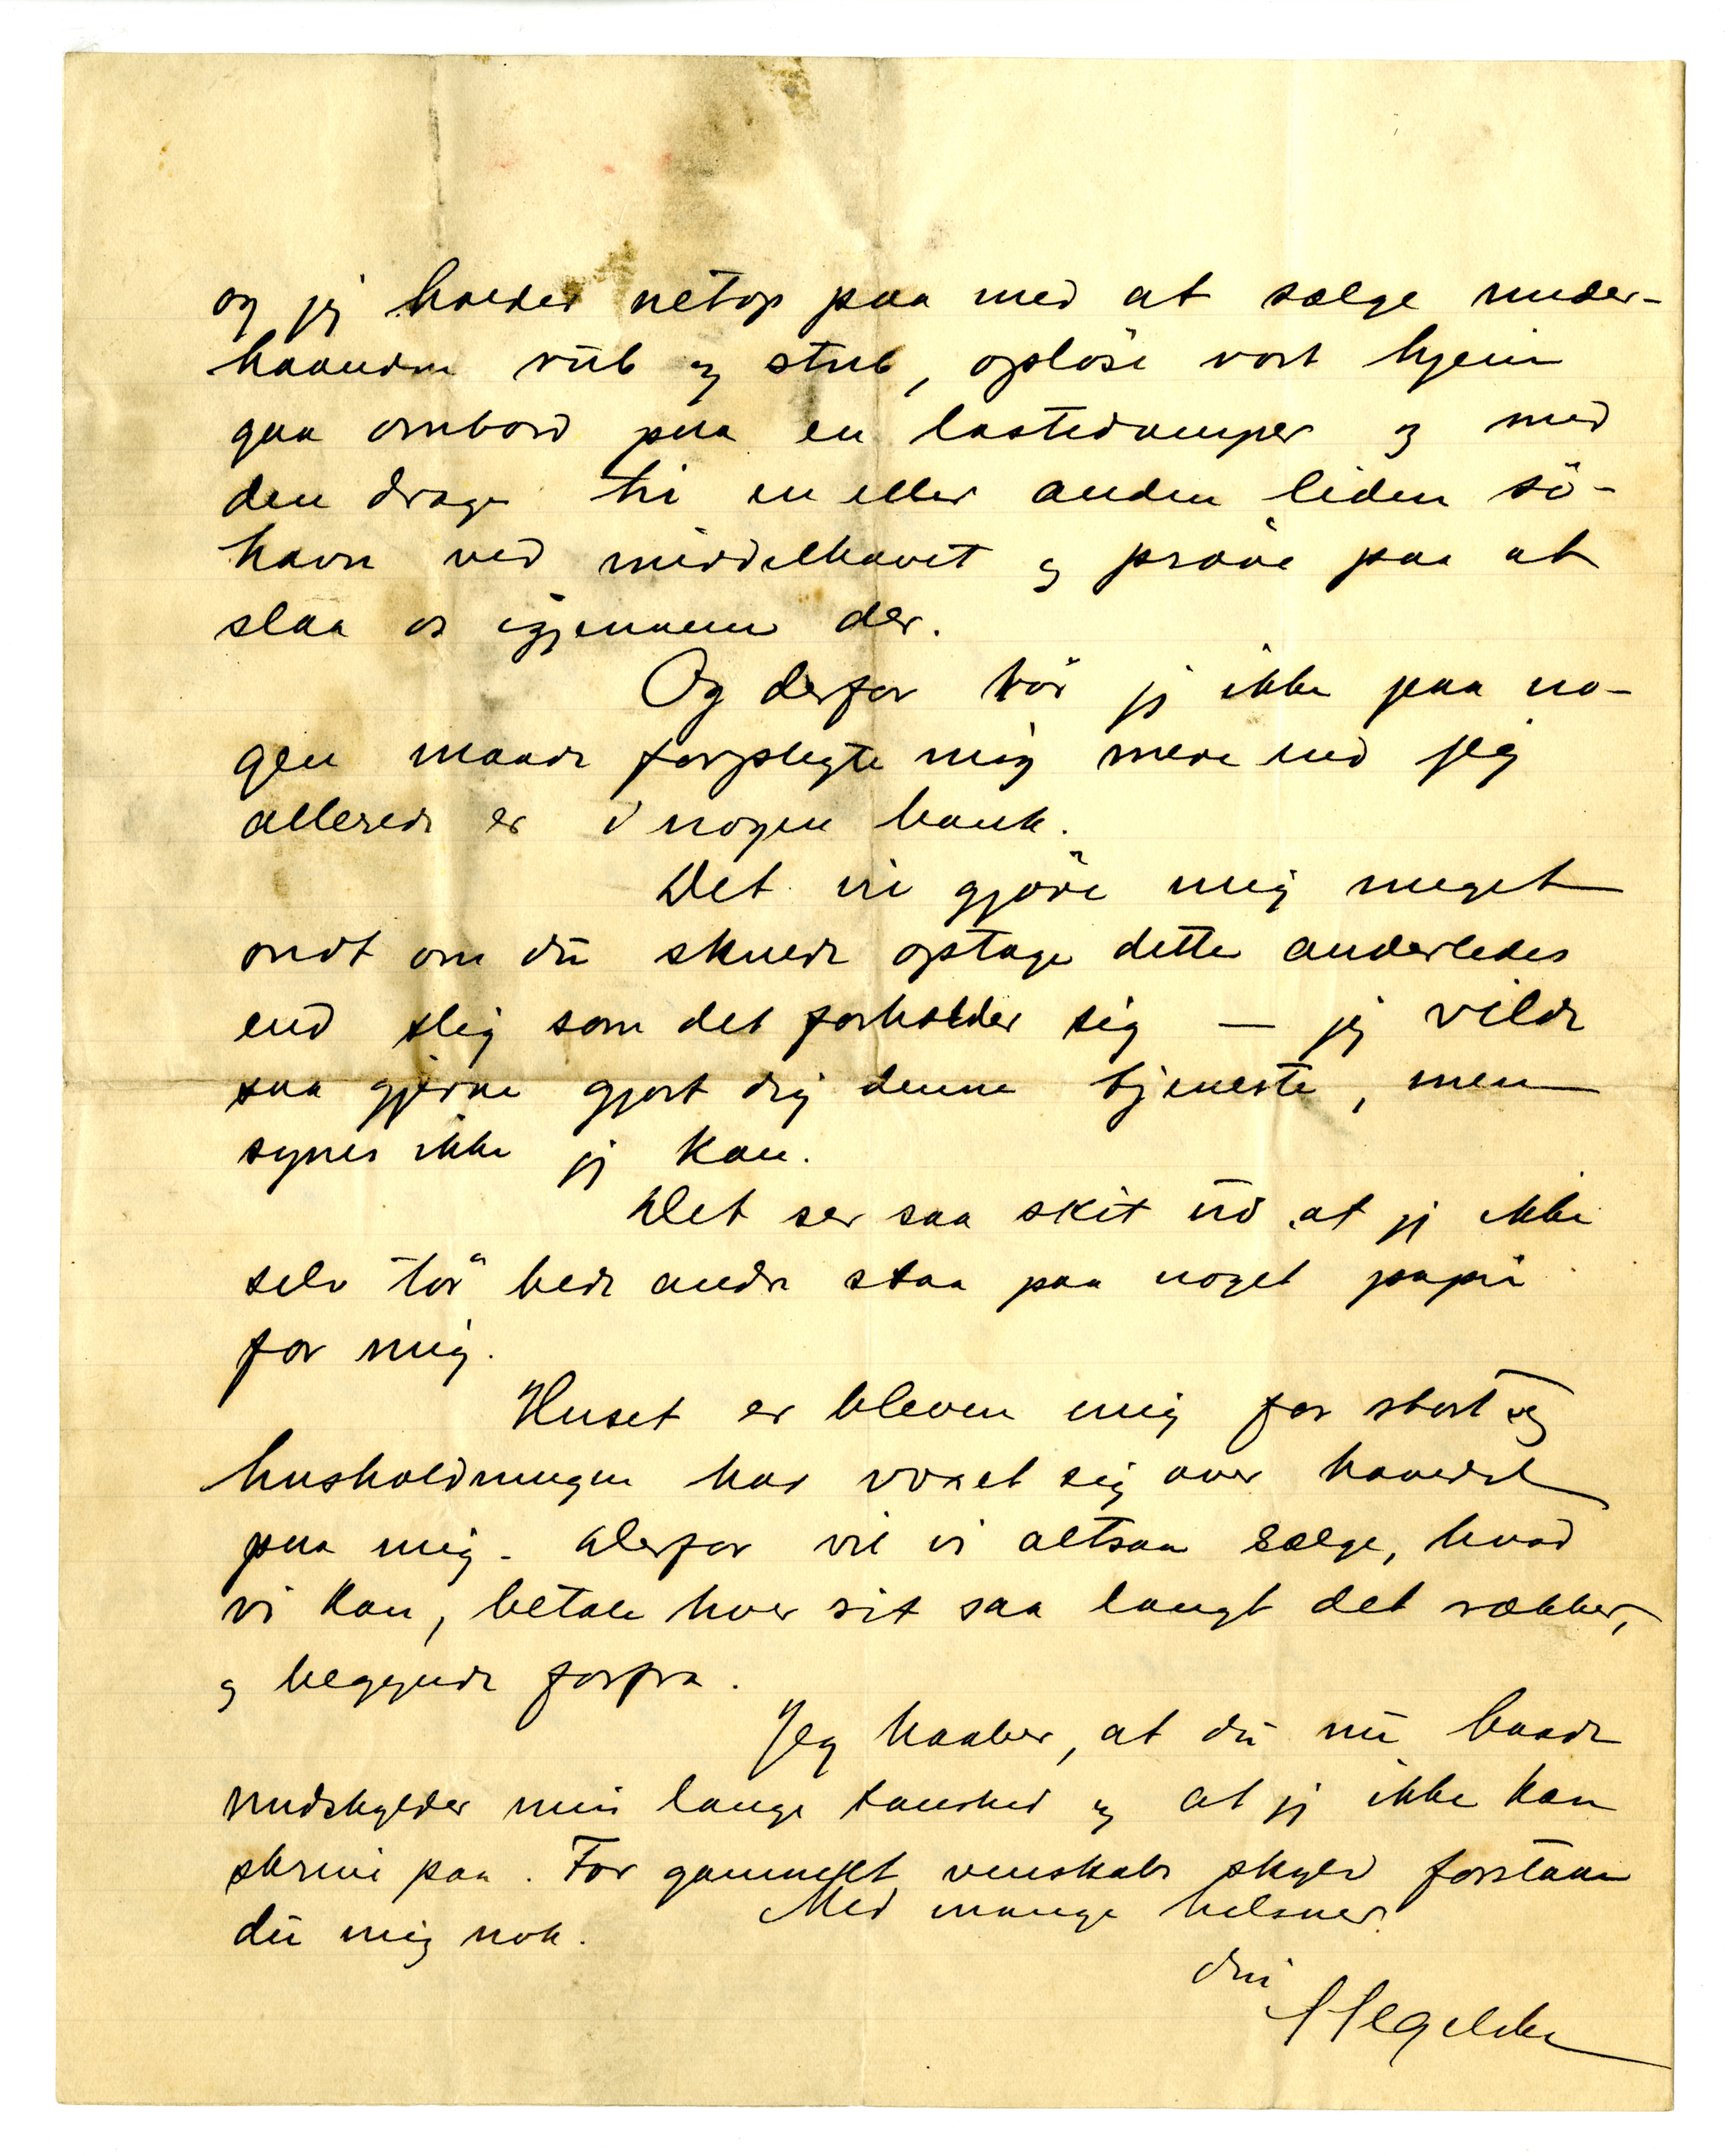 og jeg holder netop paa med at sælge under-
haanden rub og stub, opløse vort hjem
gaa ombord paa en lastedamper og med
den drage til en eller anden liden sö-
havn ved middelhavet og pröve paa at
slaa os igjennem der.
Og derfor tör jeg ikke paa no-
gen maade forpligte mig mere end jeg
allerede er i nogen bank.
Det vil gjöre mig meget
ondt om du skulde optage dette anderledes
end slig som det forholder sig — jeg vilde
saa gjerne gjort dig denne tjeneste, men
synes ikke jeg kan.
Det ser saa skit ud at jeg ikke
selv tör bede andre staa paa noget papir
for mig.
Huset er bleven mig for stort og
husholdningen har voxet sig over hovedet
paa mig. Derfor vil vi altsaa sælge, hvad
vi kan, betale hver sit saa langt det rækker,
og begynde forfra.
Jeg haaber, at du nu baade
undskylder min lange taushed og at jeg ikke kan
skrive paa. For gammelt venskabs skyld forstaar
du mig nok.
Med mange hilsner
din